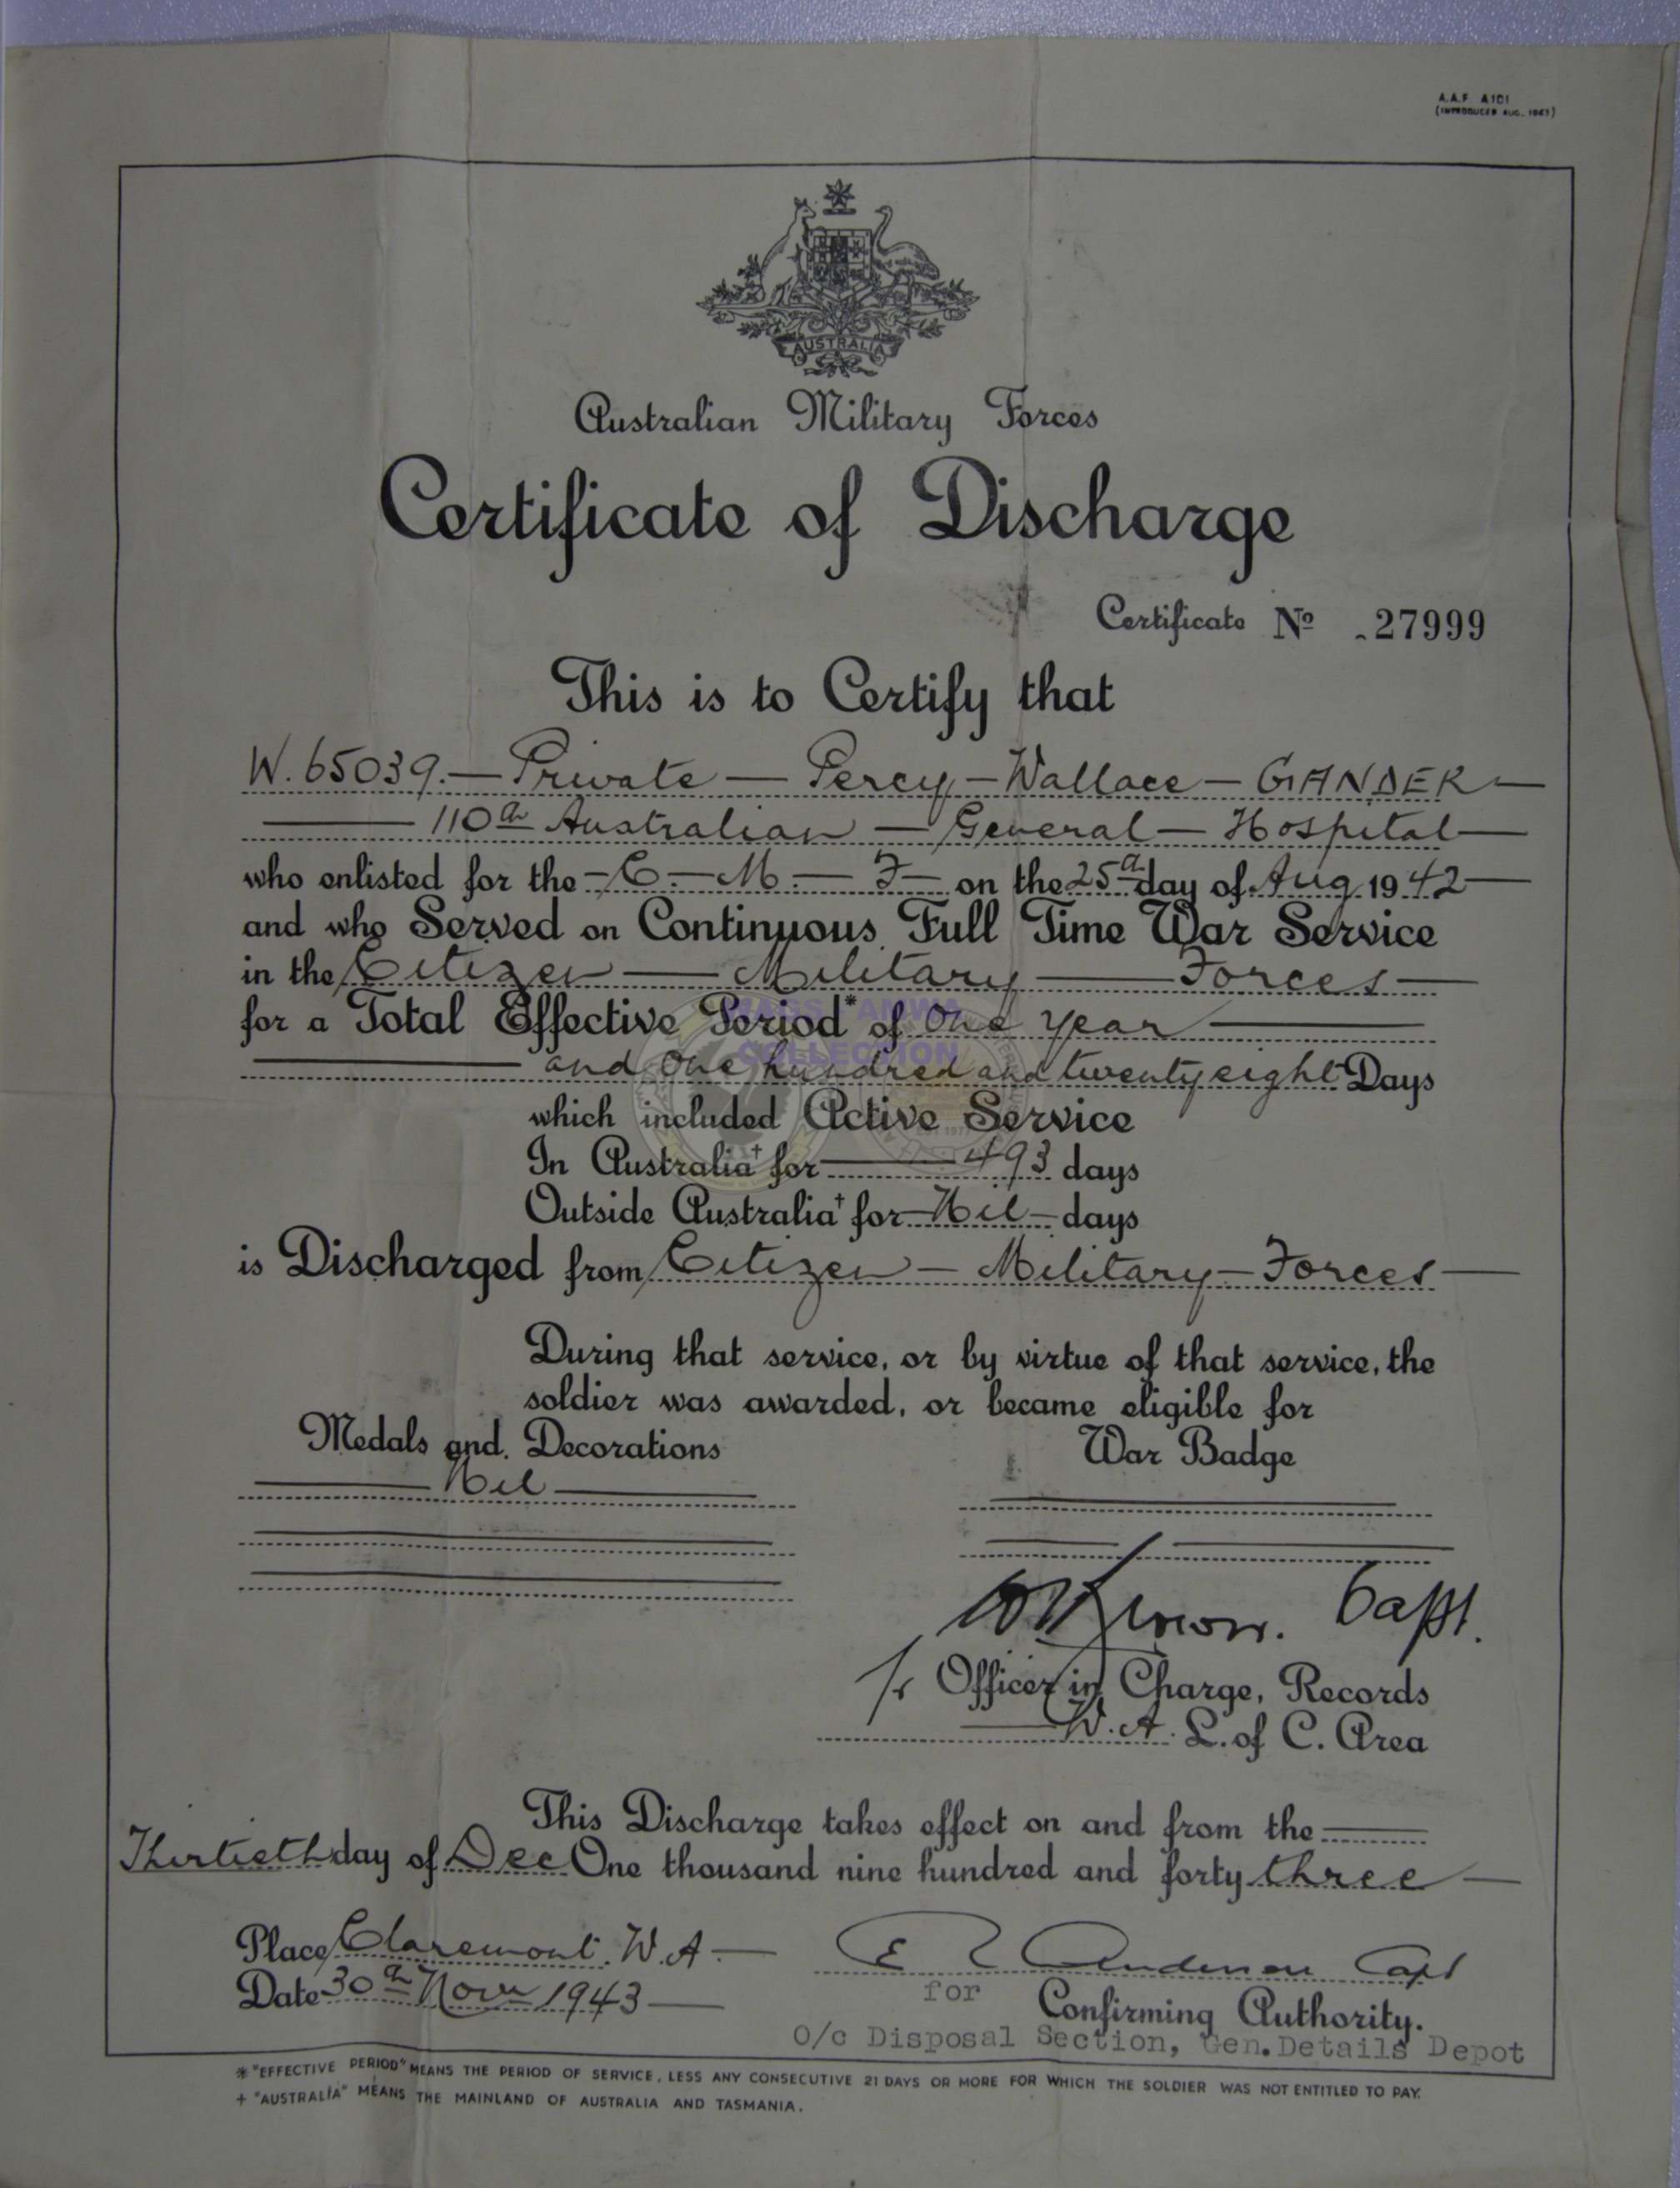 A.A.F. A101
(INTRODUCED AUG. 1943)
AUSTRALIA
Australian Military Forces
Certificate of Discharge
Certificate No 27999
This is to Certify that
W. 65039. — Private — Percy — Wallace — GANDER —
110th Australian — General — Hospital —
who enlisted for the — C. — M. — F — on the 25th day of Aug 1942 —
and who Served on Continuous Full Time War Service
in the Citizen — Military — Forces —
for a Total Effective Period* of One Year —
— and One hundred and twenty eight Days
which included Active Service
In Australia+ for — 493 days
Outside Australia+ for — Nil — days
is Discharged from Citizen — Military — Forces —
During that service, or by virtue of that service, the
soldier was awarded, or became eligible for
Medals and Decorations War Badge
— Nil —
Capt.
Officer in Charge, Records
— W.A. L. of C. Area
This Discharge takes effect on and from the —
Thirtieth day of Dec One thousand nine hundred and forty three —
Place Claremont. W.A —
Date 30th Nov 1943 —
E Anderson Capt
for Confirming Authority.
O/c Disposal Section, Gen. Details Depot
* "EFFECTIVE PERIOD" MEANS THE PERIOD OF SERVICE, LESS ANY CONSECUTIVE 21 DAYS OR MORE FOR WHICH THE SOLDIER WAS NOT ENTITLED TO PAY.
+ "AUSTRALIA" MEANS THE MAINLAND OF AUSTRALIA AND TASMANIA.
WAGS - AMWA
COLLECTION